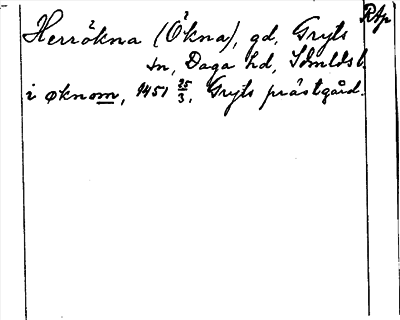 Rtp
Herrökna (Ökna), gd, Gryts
sn, Daga hd, Sdmlds l
i øknom, 1451 25/3, Gryts prästgård.